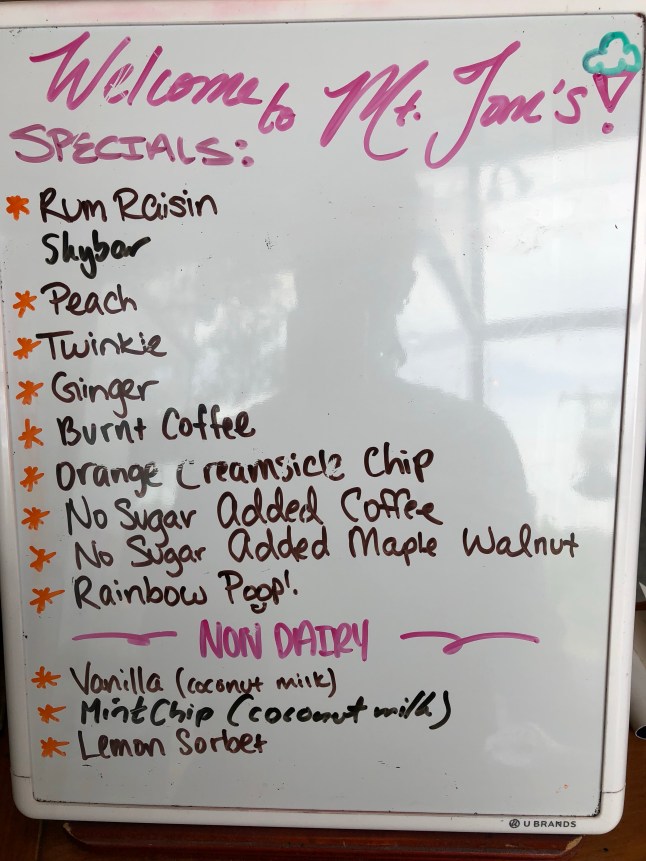 Welcome to Mt. Tom's!
SPECIALS:
* Rum Raisin
Skybar
* Peach
* Twinkie
* Ginger
* Burnt Coffee
* Orange Creamsicle Chip
* No Sugar Added Coffee
* No Sugar Added Maple Walnut
* Rainbow Poop!
NON DAIRY
* Vanilla (coconut milk)
* Mint Chip (coconut milk)
* Lemon Sorbet
U BRANDS